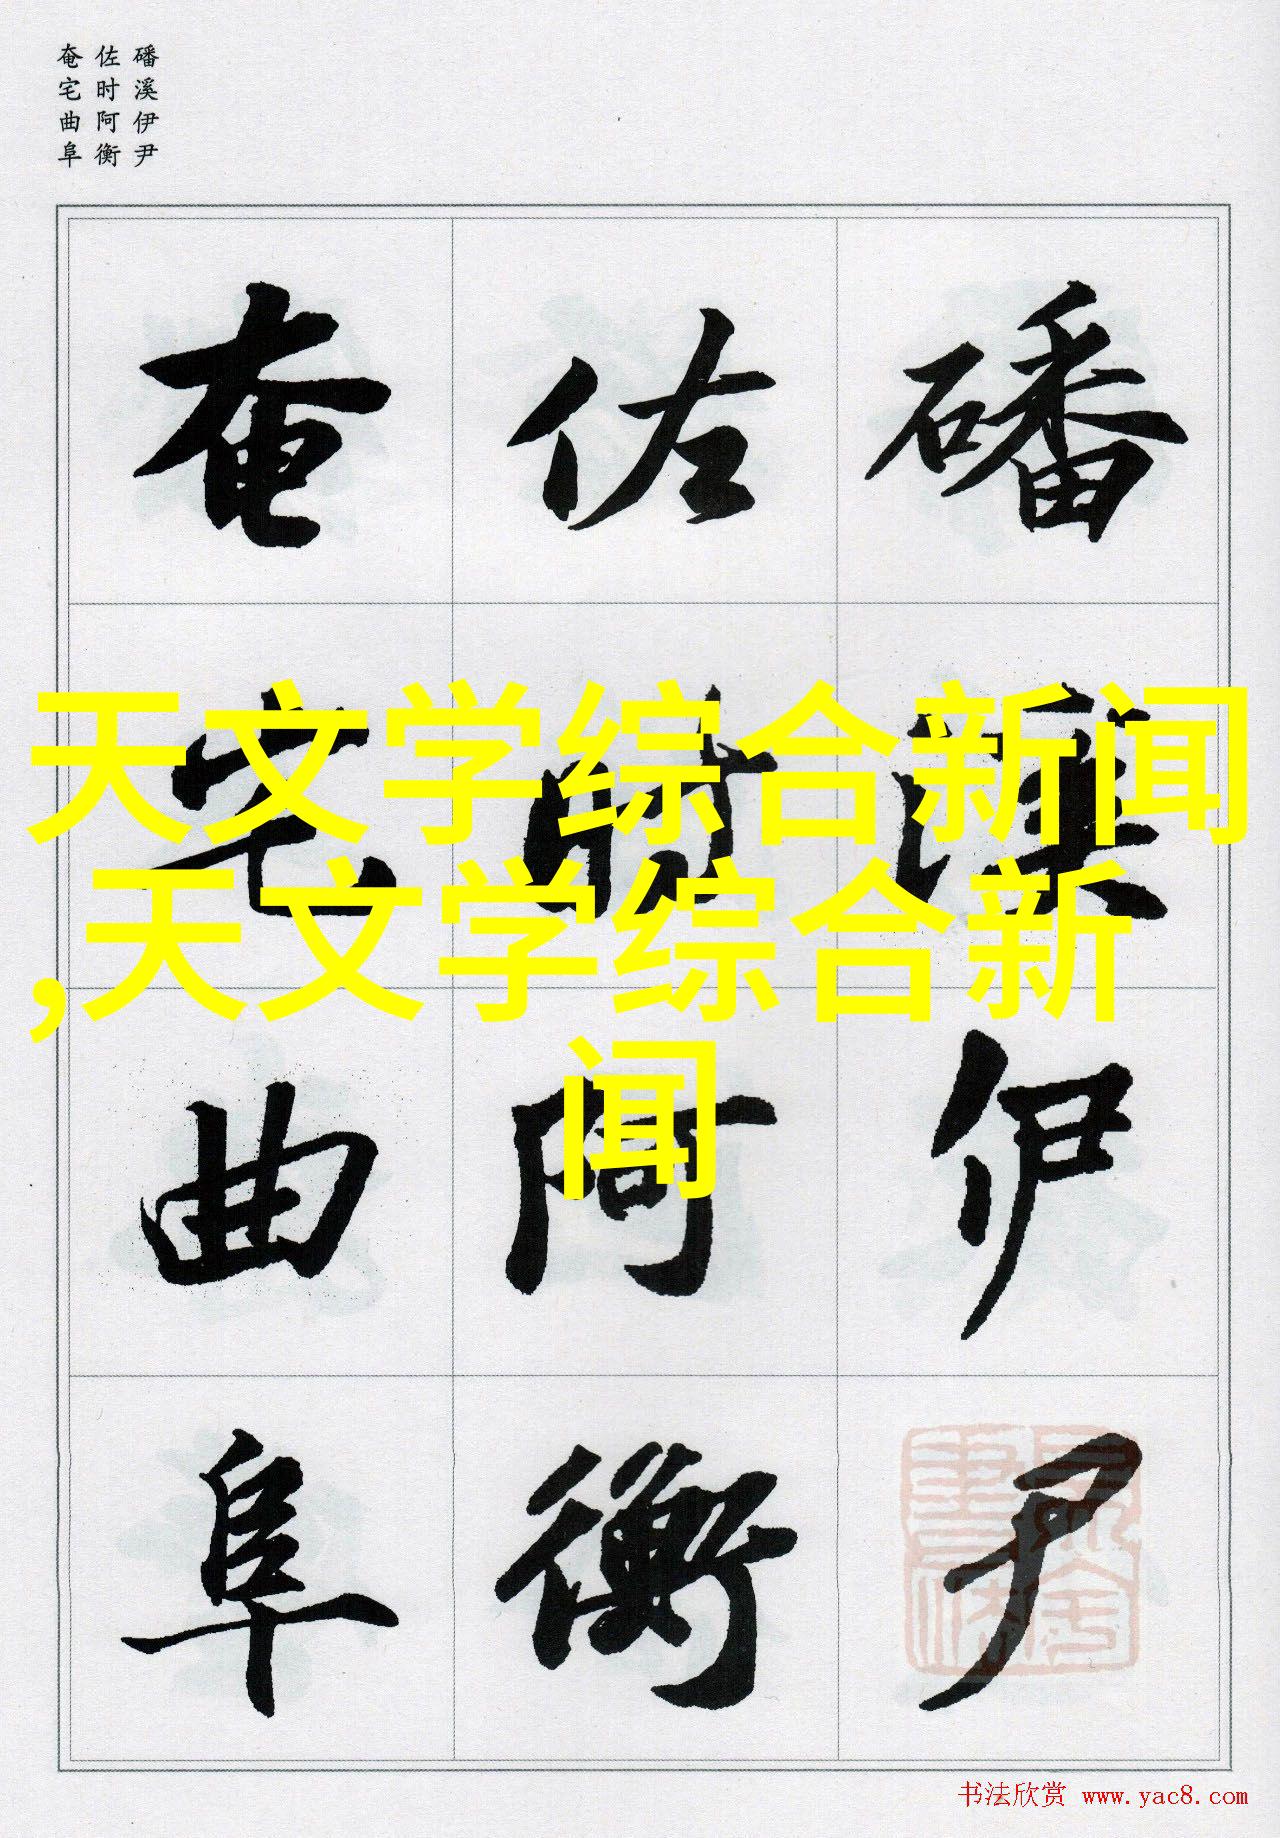 磻溪伊尹
佐时阿衡
奄宅曲阜
磻溪伊尹
佐时阿衡
奄宅曲阜
天文学综合新闻
,天文学综合新
闻
书法欣赏 www.yac8.com